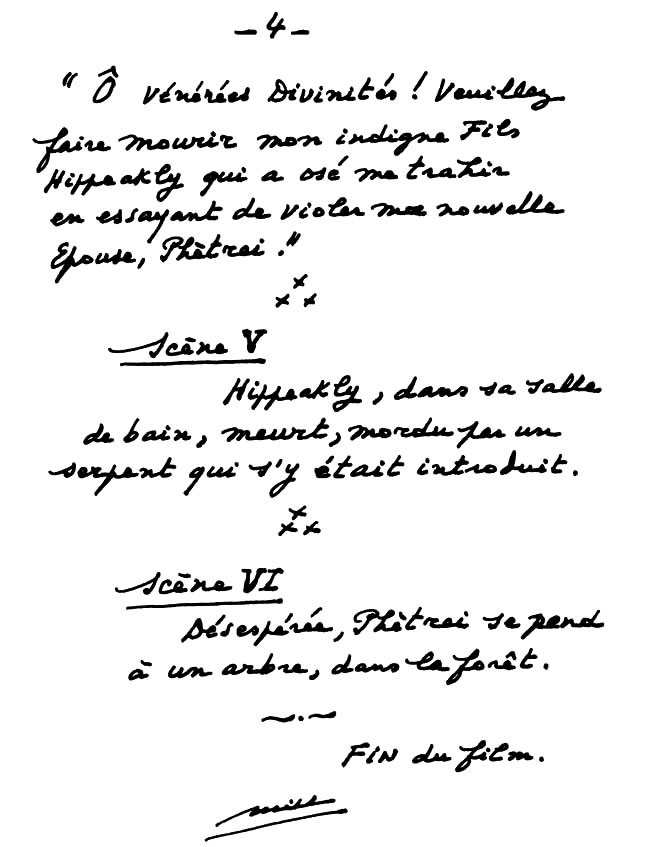 - 4 -
" Ô vénérées Divinités ! Veuillez
faire mourir mon indigne Fils
Hippeakly qui a osé me trahir
en essayant de violer ma nouvelle
Epouse, Phètrei . "
x
x x
Scène V
Hippeakly, dans sa salle
de bain, meurt, mordu par un
serpent qui s'y était introduit.
x
x x
Scène VI
Désespérée, Phètrei se pend
à un arbre, dans la forêt.
~.~
FIN du film.